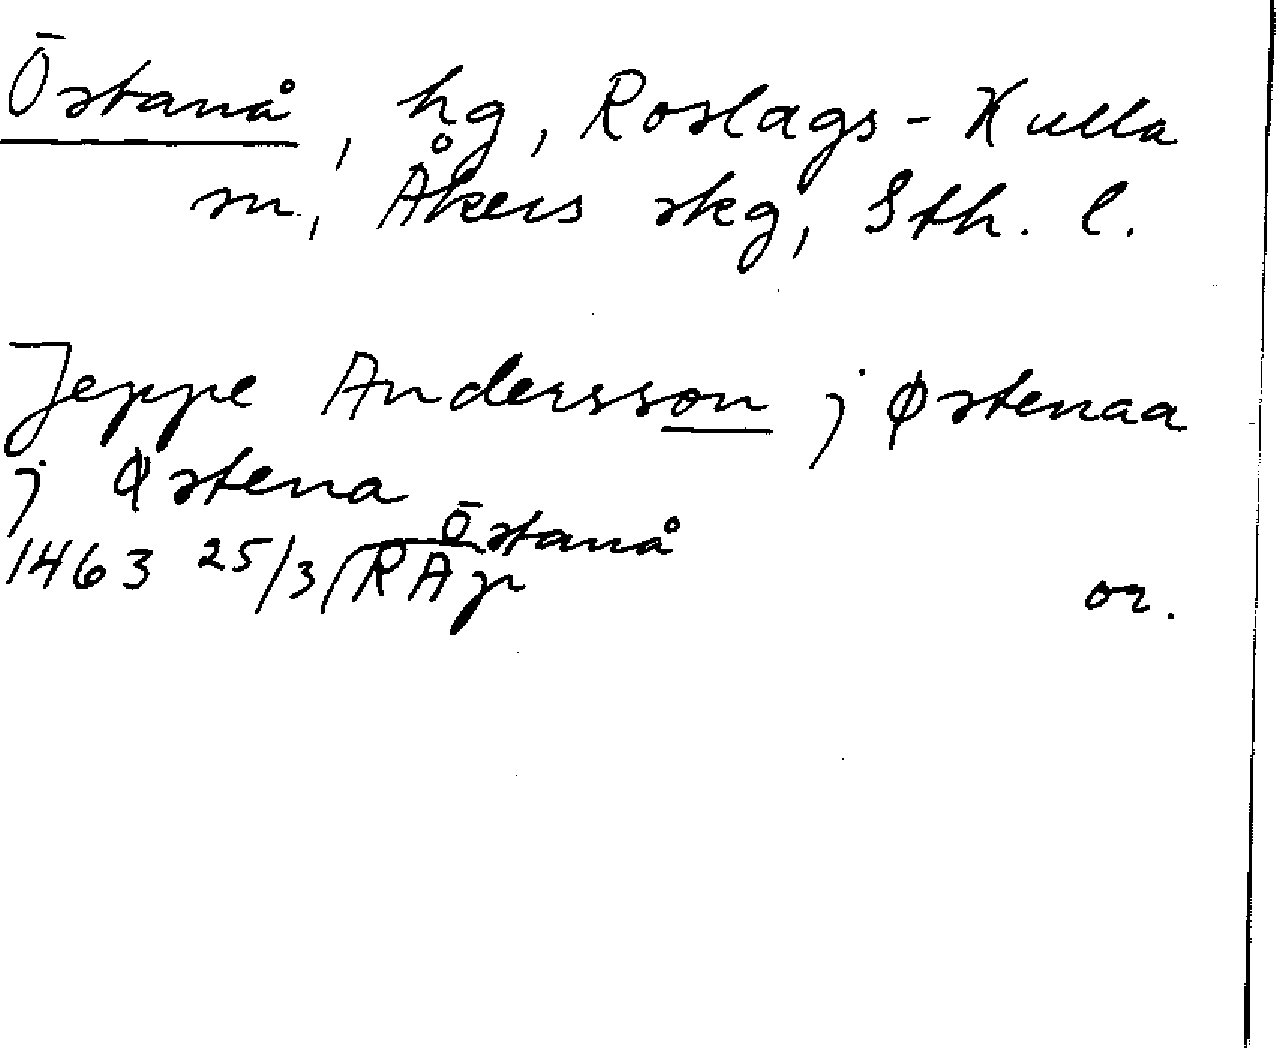 Östanå, hg, Roslags-Kulla
sn, Åkers skg, Sth. l.
Jeppe Andersson j Østenaa
j Østena
Östanå
1463 25/3 RAp or.